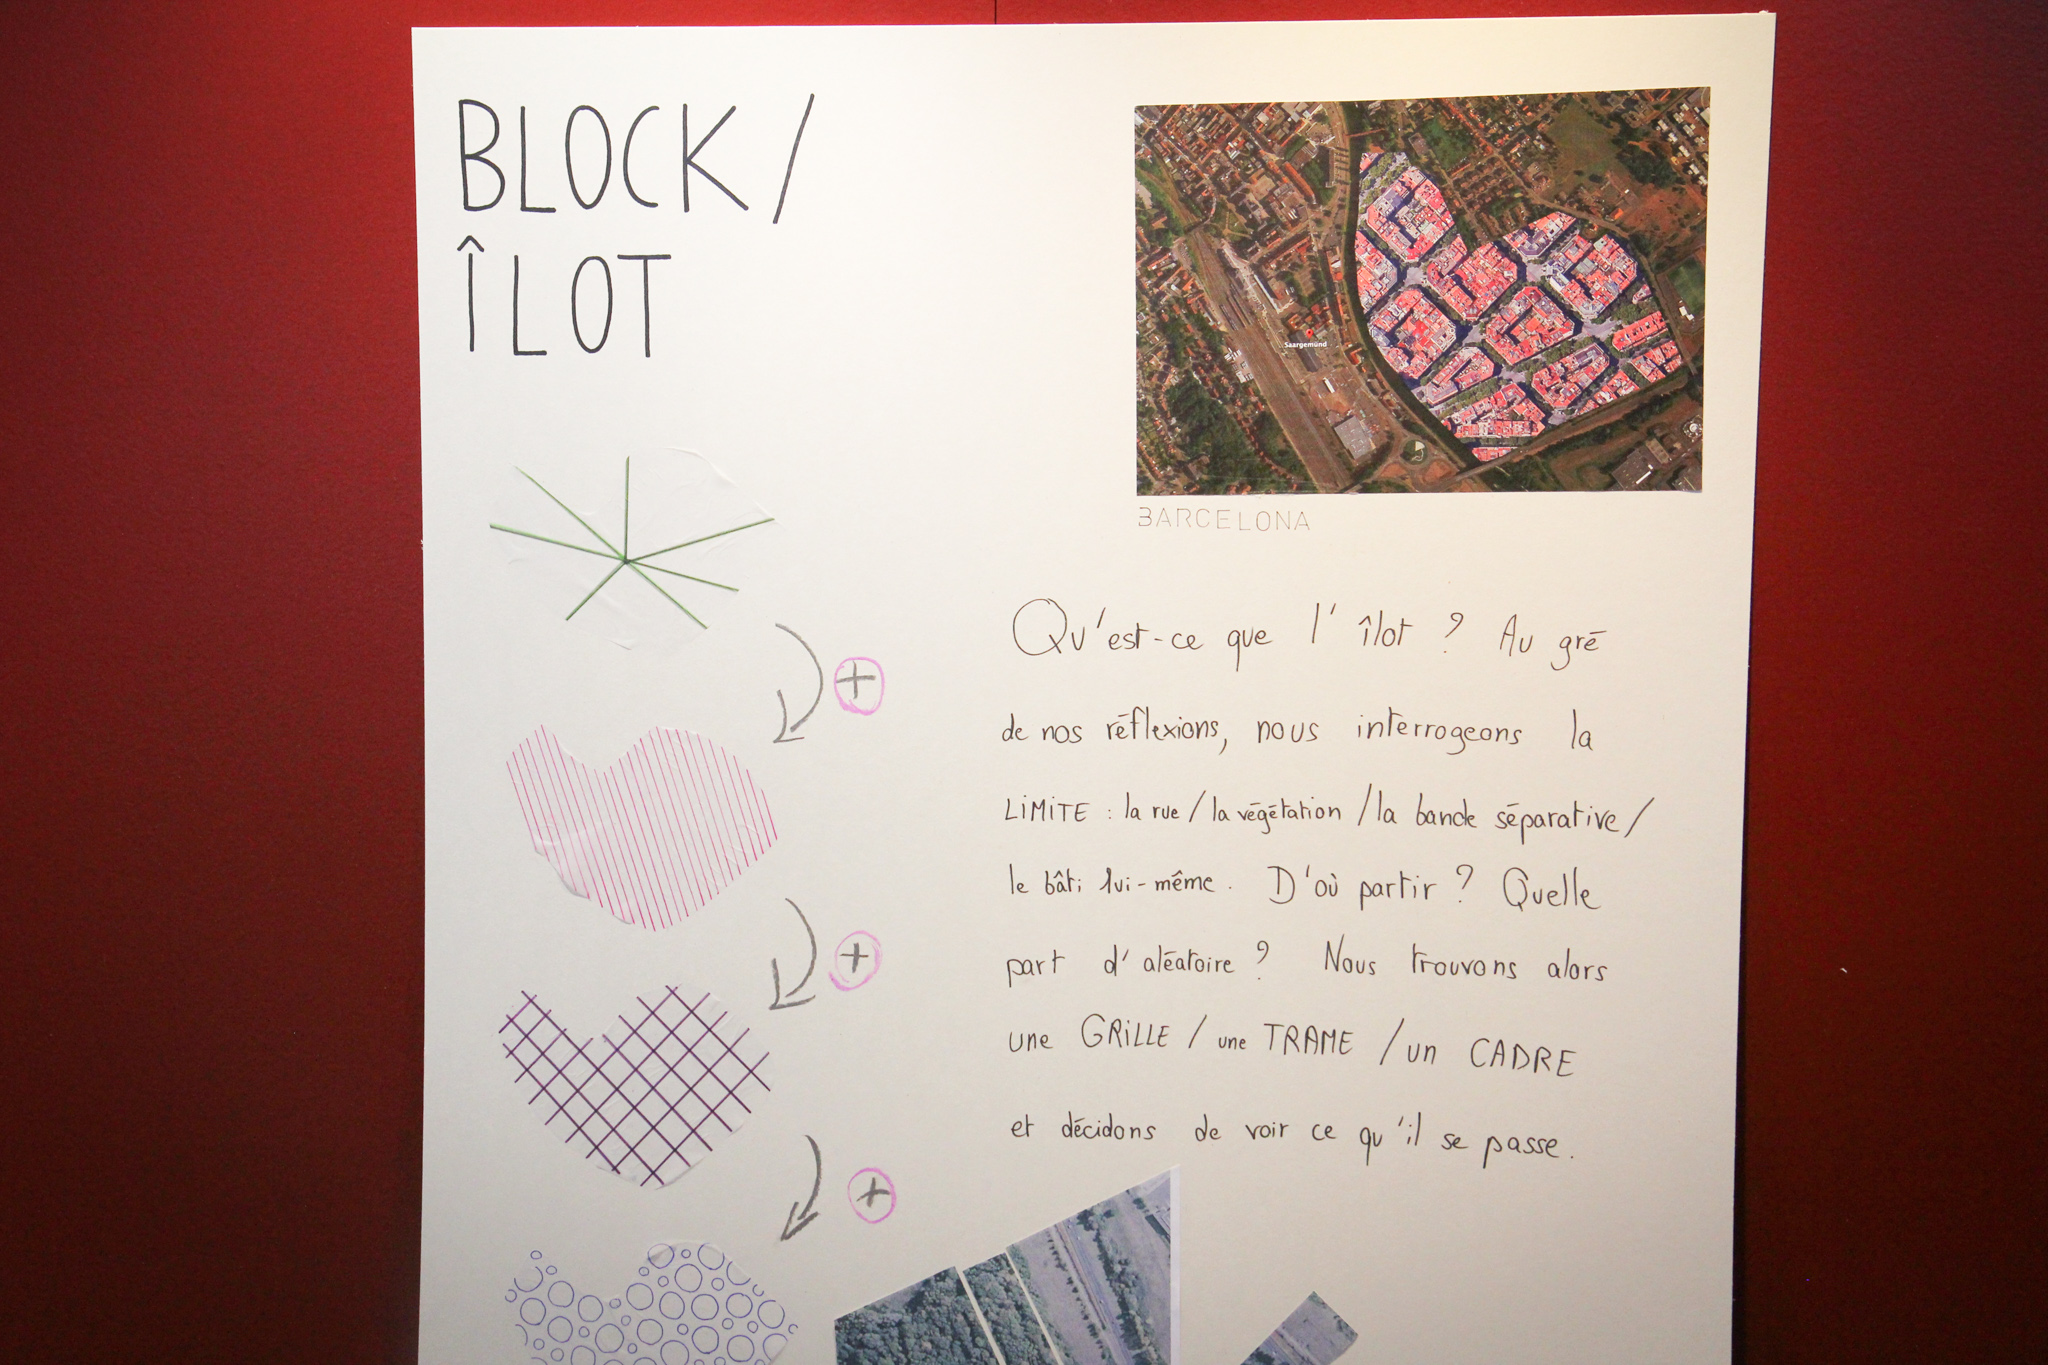 BLOCK/
ÎLOT
Saargemünd
BARCELONA
Qu'est-ce que l'îlot ? Au gré
de nos réflexions, nous interrogeons la
LIMITE : la rue / la végétation / la bande séparative /
le bâti lui-même. D'où partir ? Quelle
part d'aléatoire ? Nous trouvons alors
une GRILLE / une TRAME / un CADRE
et décidons de voir ce qu'il se passe.
+
+
+